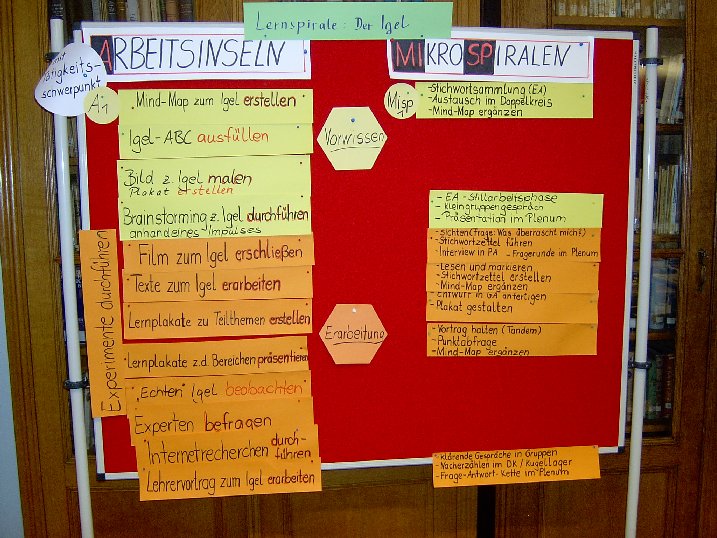 Lernspirale: Der Igel
ARBEITSINSELN
MIKROSPIRALEN
mit
Tätigkeits-
schwerpunkt
A1
Mind-Map zum Igel erstellen
Igel-ABC ausfüllen
Bild z. Igel malen
Plakat erstellen
Brainstorming z. Igel durchführen
anhand eines Impulses
Film zum Igel erschließen
Texte zum Igel erarbeiten
Lernplakate zu Teilthemen erstellen
Lernplakate z.d. Bereichen präsentieren
"Echten" Igel beobachten
Experten befragen
Internetrecherchen durch-
führen
Lehrervortrag zum Igel erarbeiten
Experimente durchführen
Vorwissen
Erarbeitung
Misp 1
-Stichwortsammlung (EA)
-Austausch im Doppelkreis
-Mind-Map ergänzen
- EA - Stillarbeitsphase
- Kleingruppengespräch
- Präsentation im Plenum
-Sichten (Frage: Was überrascht mich?)
-Stichwortzettel führen
-Interview in PA - Fragerunde im Plenum
-Lesen und markieren
-Stichwortzettel erstellen
-Mind-Map ergänzen
-Entwurf in GA anfertigen
-Plakat gestalten
-Vortrag halten (Tandem)
-Punktabfrage
-Mind-Map ergänzen
-klärende Gespräche in Gruppen
-Nacherzählen im DK / Kugellager
-Frage-Antwort-Kette im Plenum